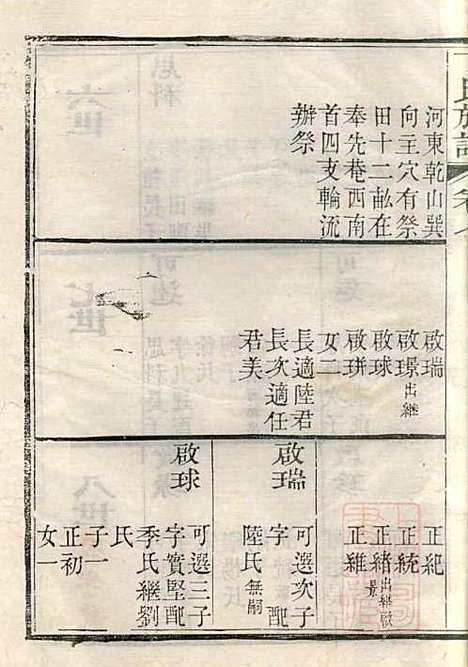 氏族譜
河東乾山巽
向王穴有祭
田十二畝在
奉先菴西南
首四支輪流
辦祭
啟瑞
啟璟出繼
啟球
啟琪
女二
長適陸君
長次適任
君美
正紀
正統
正緒出繼啟璟
正維
啟瑞
可選次子
字 配
陸氏無嗣
啟球
可選三子
字實堅配
季氏繼劉
氏
子一
正初
女一